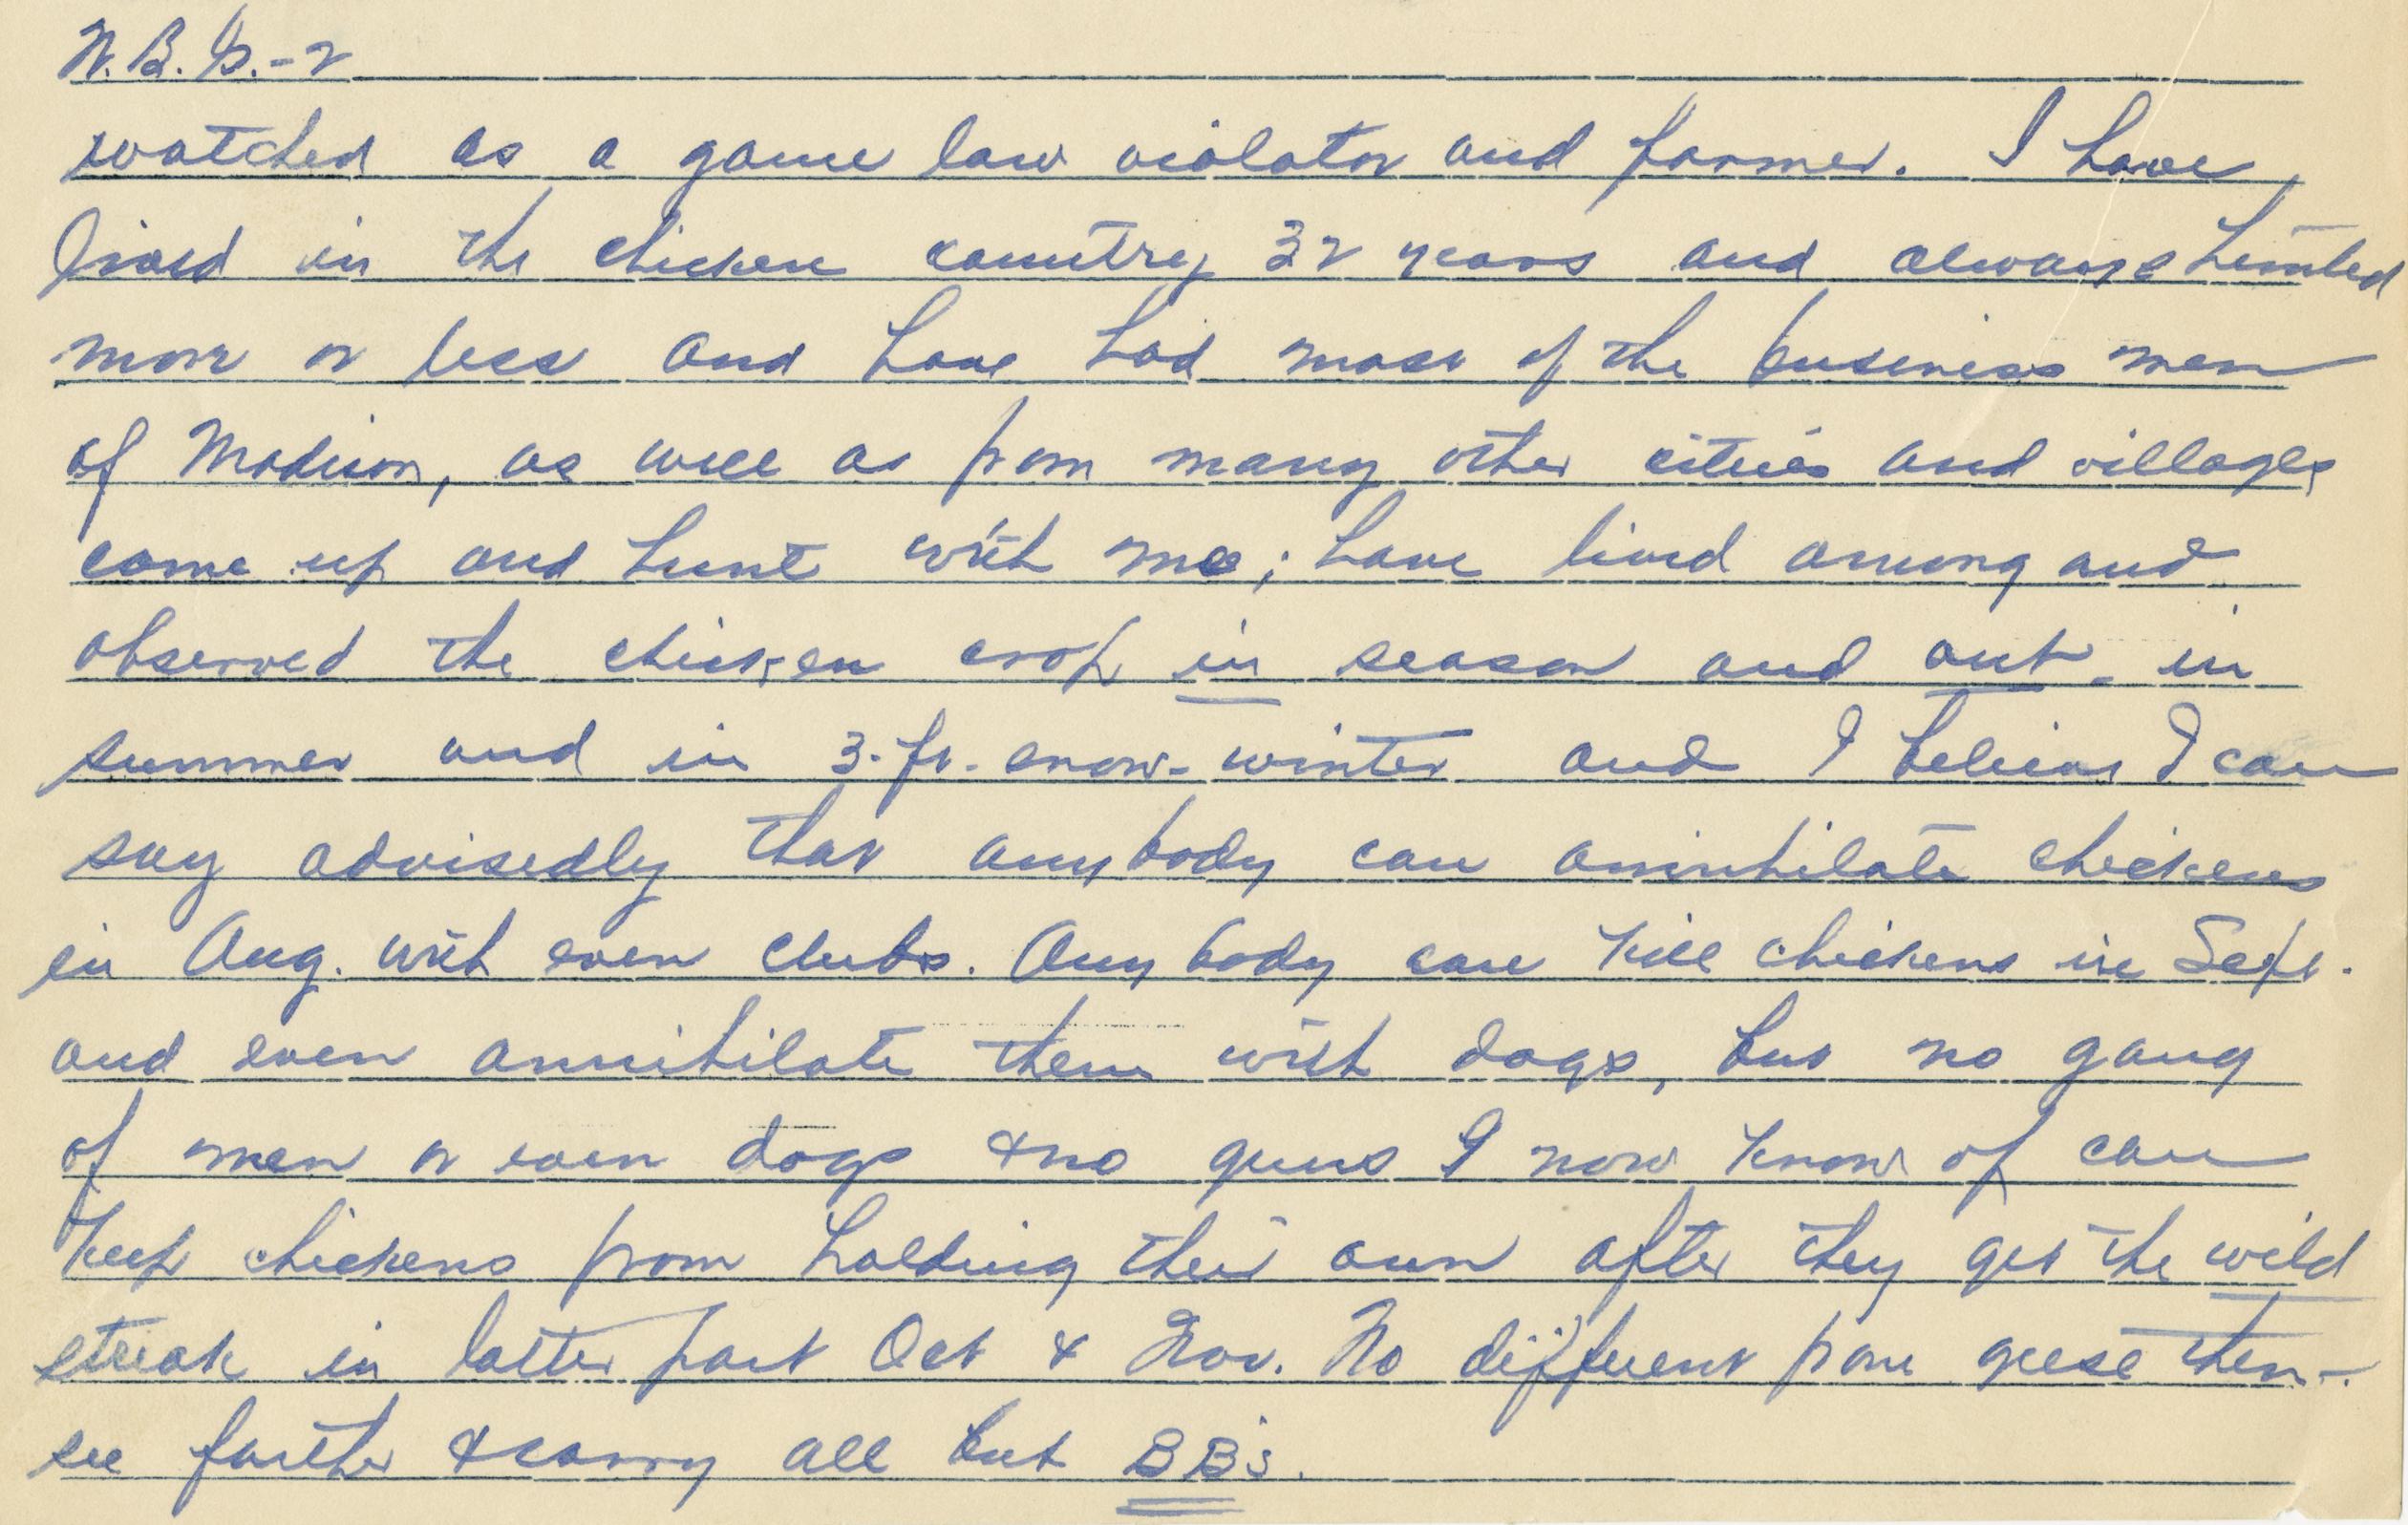 W.B.G.-2
watched as a game law violator and farmer. I have
lived in the chicken country 32 years and always hunted
more or less and have had most of the business men
of Madison, as well as from many other cities and villages
come up and hunt with me; have lived among and
observed the chicken crop in season and out - in
summer and in 3-ft.-snow-winter and I believe I can
say advisedly that anybody can aninhilate chickens
in Aug. with even clubs. Anybody can kill chickens in Sept.
and even annihilate them with dogs, but no gang
of men or even dogs & no guns I now know of can
keep chickens from holding their own after they get the wild
streak in latter part Oct & Nov. No different from geese then -
see farther & carry all but BB's.